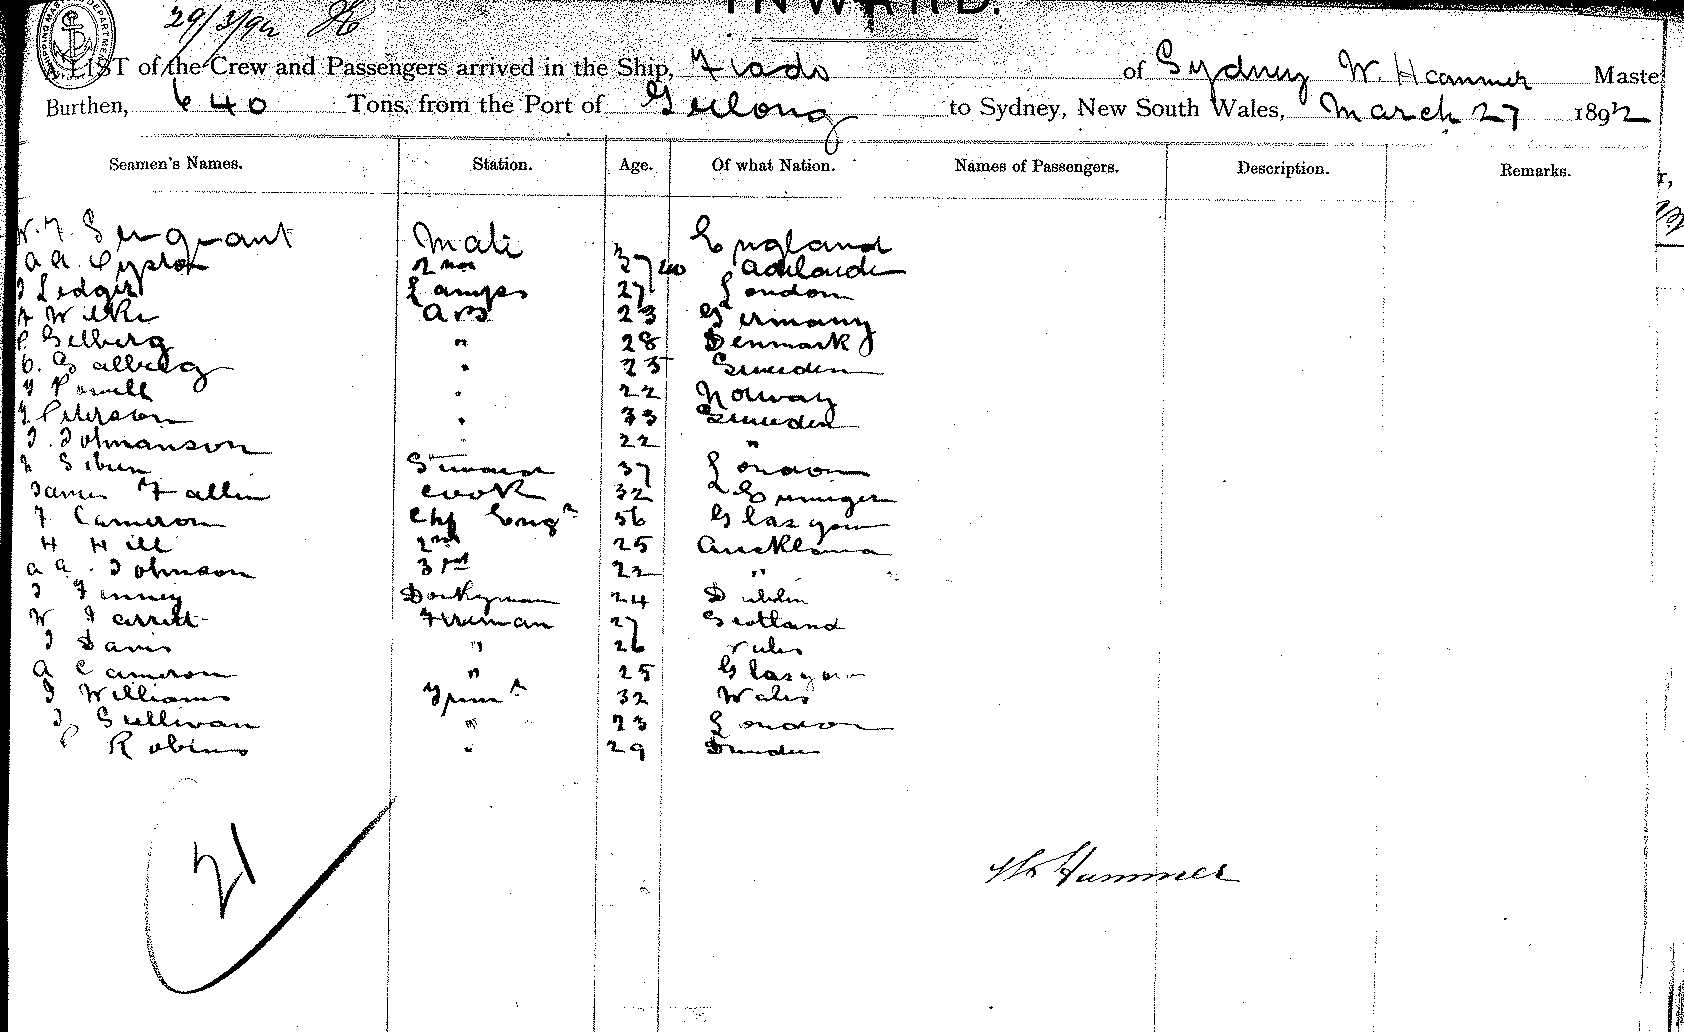 29/3/92
INWARD.
A LIST of the Crew and Passengers arrived in the Ship, Fiado of Sydney W. Hammer Maste
Burthen, 640 Tons, from the Port of Geelong to Sydney, New South Wales, March 27 1892
Seamen's Names. Station. Age. Of what Nation. Names of Passengers. Description. Remarks.
W. F. Sergeant Mate 37 England
A A. 2nd 40 Adelaide
J Ledger Lamps 27 London
F Wilke AB 23 Germany
P Gelberg " 28 Denmark
O. Galberg " 25 Sweden
Powell " 22 Norway
Peterson " 33 Sweden
J. Johnanson " 22 "
Steward 37 London
James Fallin Cook 32
F Cameron Chf Engr 56 Glasgow
H Hill 2nd 25 Auckland
A A. Johnson 3rd 22 "
J Finney Donkyman 24 Dublin
W Jarrett Fireman 27 Scotland
J Davis " 26 Wales
A Cameron " 25 Glasgow
J Williams Trimr 32 Wales
J Sullivan " 23 London
P Robins " 29 Dundee
21
W Hammer